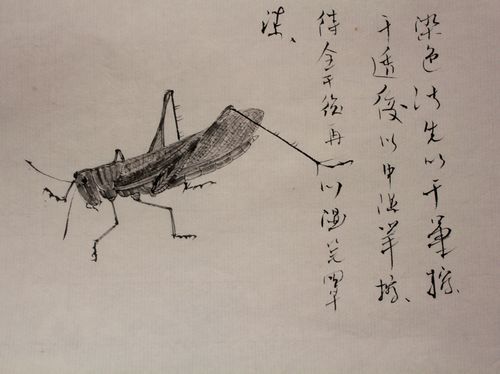 染色法先以干墨擦、
干透後以中湿笔擦、
待全干後再以湿笔罩
染、